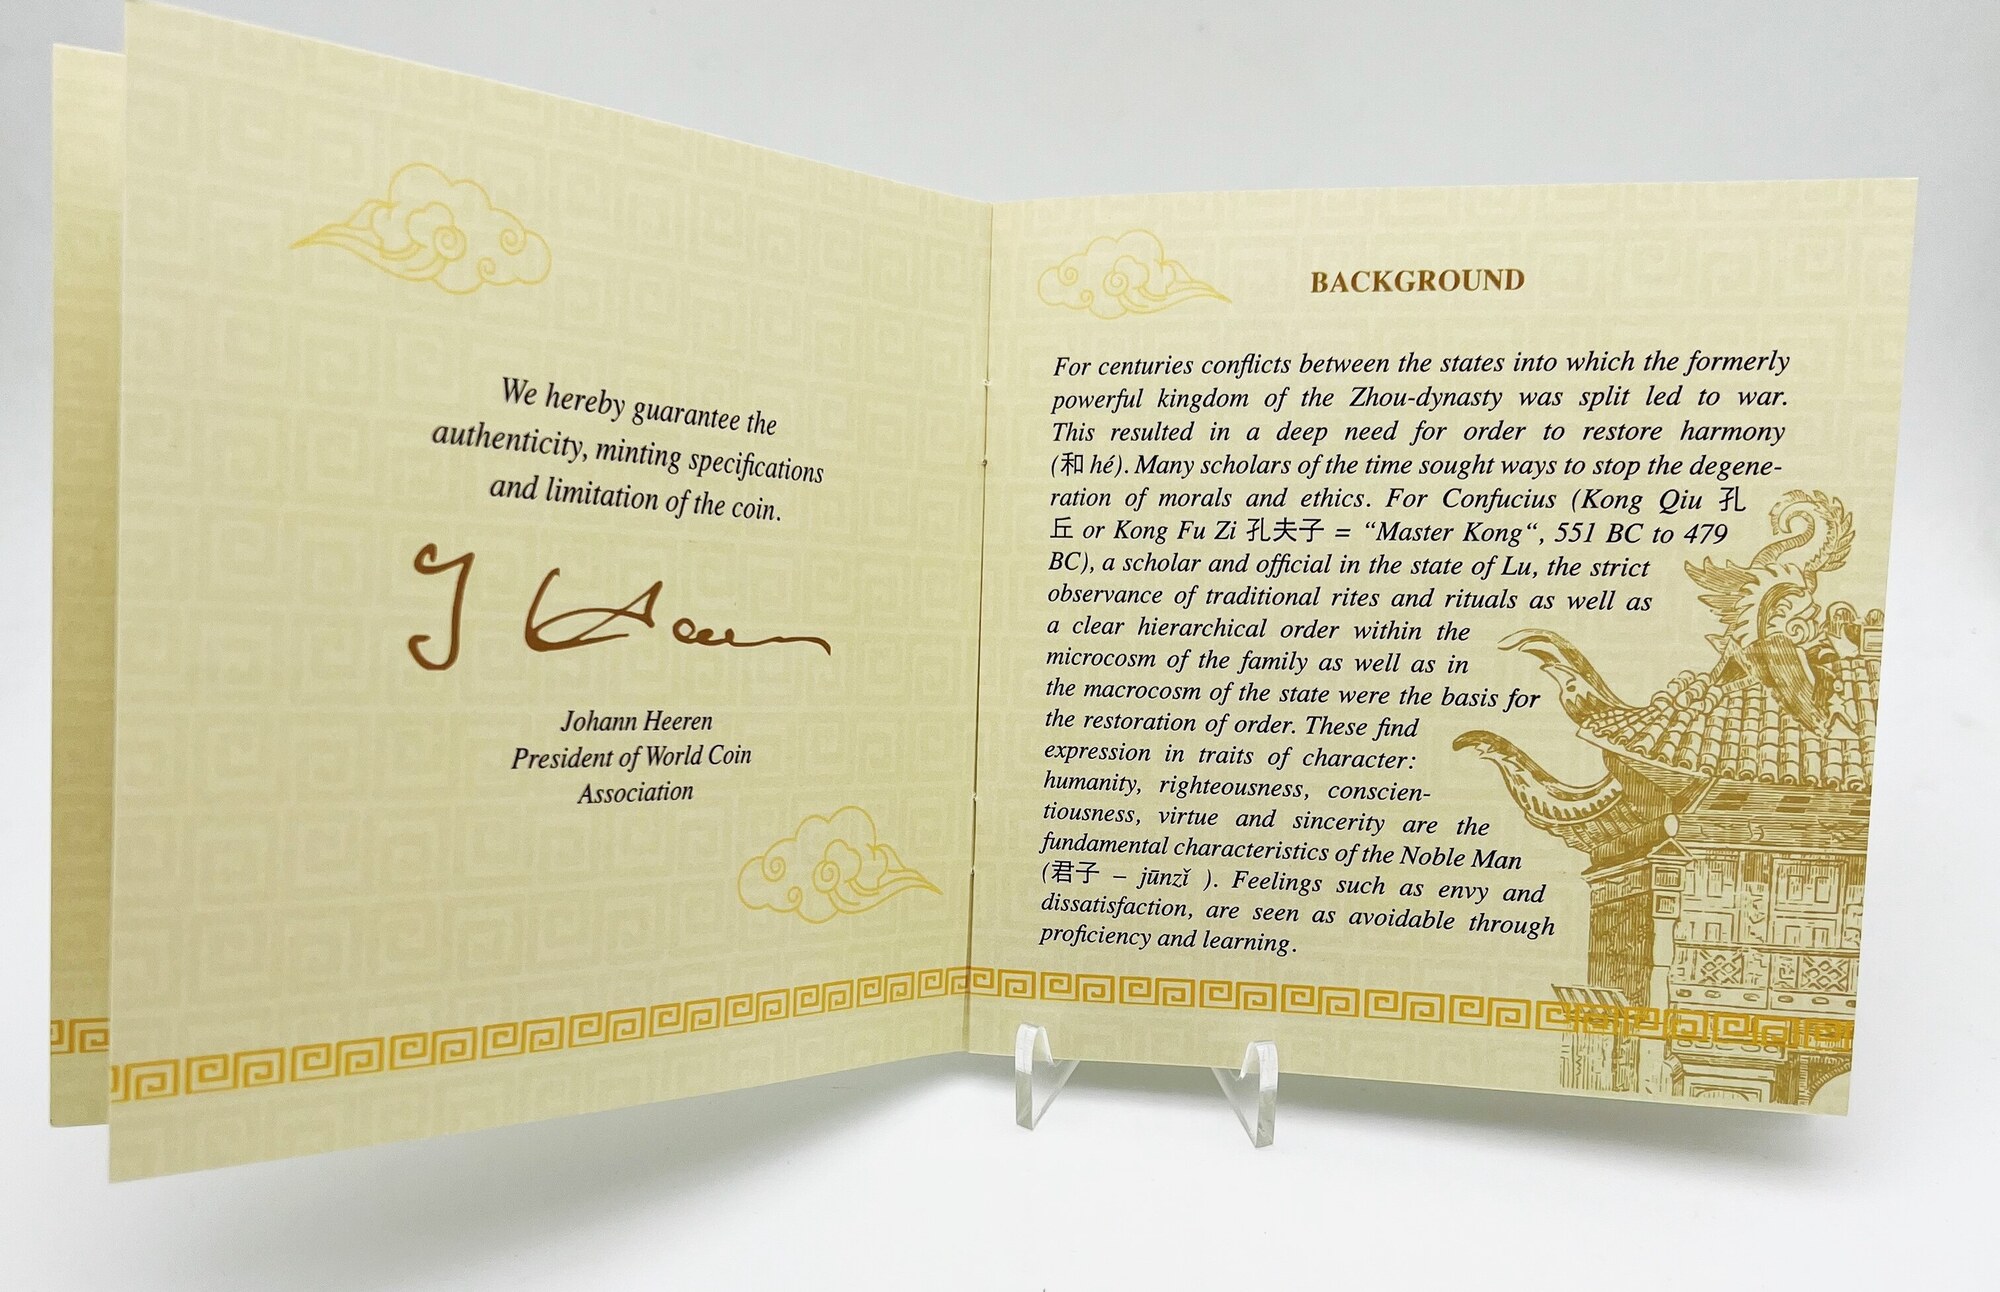 We hereby guarantee the
authenticity, minting specifications
and limitation of the coin.
J Heeren
Johann Heeren
President of World Coin
Association
BACKGROUND
For centuries conflicts between the states into which the formerly
powerful kingdom of the Zhou-dynasty was split led to war.
This resulted in a deep need for order to restore harmony
(和 hé). Many scholars of the time sought ways to stop the degene-
ration of morals and ethics. For Confucius (Kong Qiu 孔
丘 or Kong Fu Zi 孔夫子 = “Master Kong“, 551 BC to 479
BC), a scholar and official in the state of Lu, the strict
observance of traditional rites and rituals as well as
a clear hierarchical order within the
microcosm of the family as well as in
the macrocosm of the state were the basis for
the restoration of order. These find
expression in traits of character:
humanity, righteousness, conscien-
tiousness, virtue and sincerity are the
fundamental characteristics of the Noble Man
(君子 – jūnzǐ ). Feelings such as envy and
dissatisfaction, are seen as avoidable through
proficiency and learning.